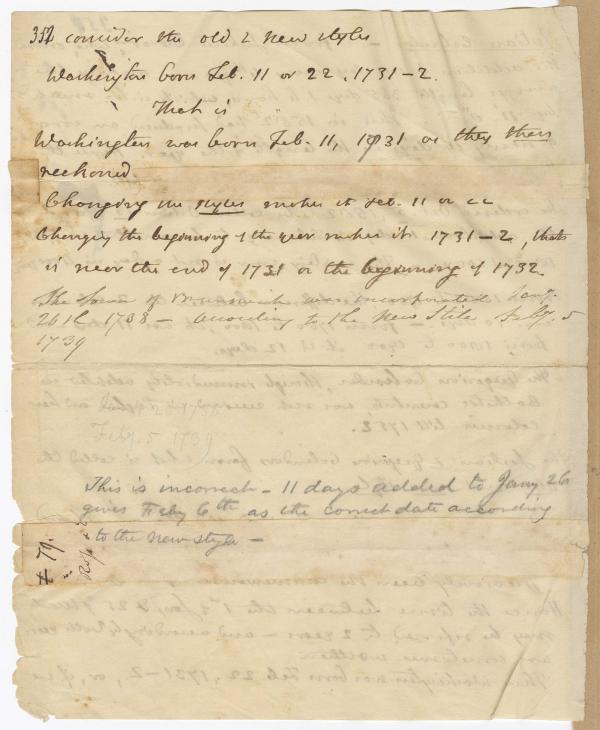 352 consider the old & new styles
Washington born Feb. 11 or 22, 1731-2.
That is
Washington was born Feb. 11, 1731 as they then
reckoned.
Changing the styles makes it Feb. 11 or 22
Changing the beginning of the year makes it 1731-2, that
is near the end of 1731 or the beginning of 1732.
The Town of Brunswick was incorporated Jany.
26th 1738 - according to the New Stile Feby. 5
1739
Feby. 5 1739
This is incorrect - 11 days added to Jany 26
gives Feby 6th as the correct date according
to the new style -
# 79.